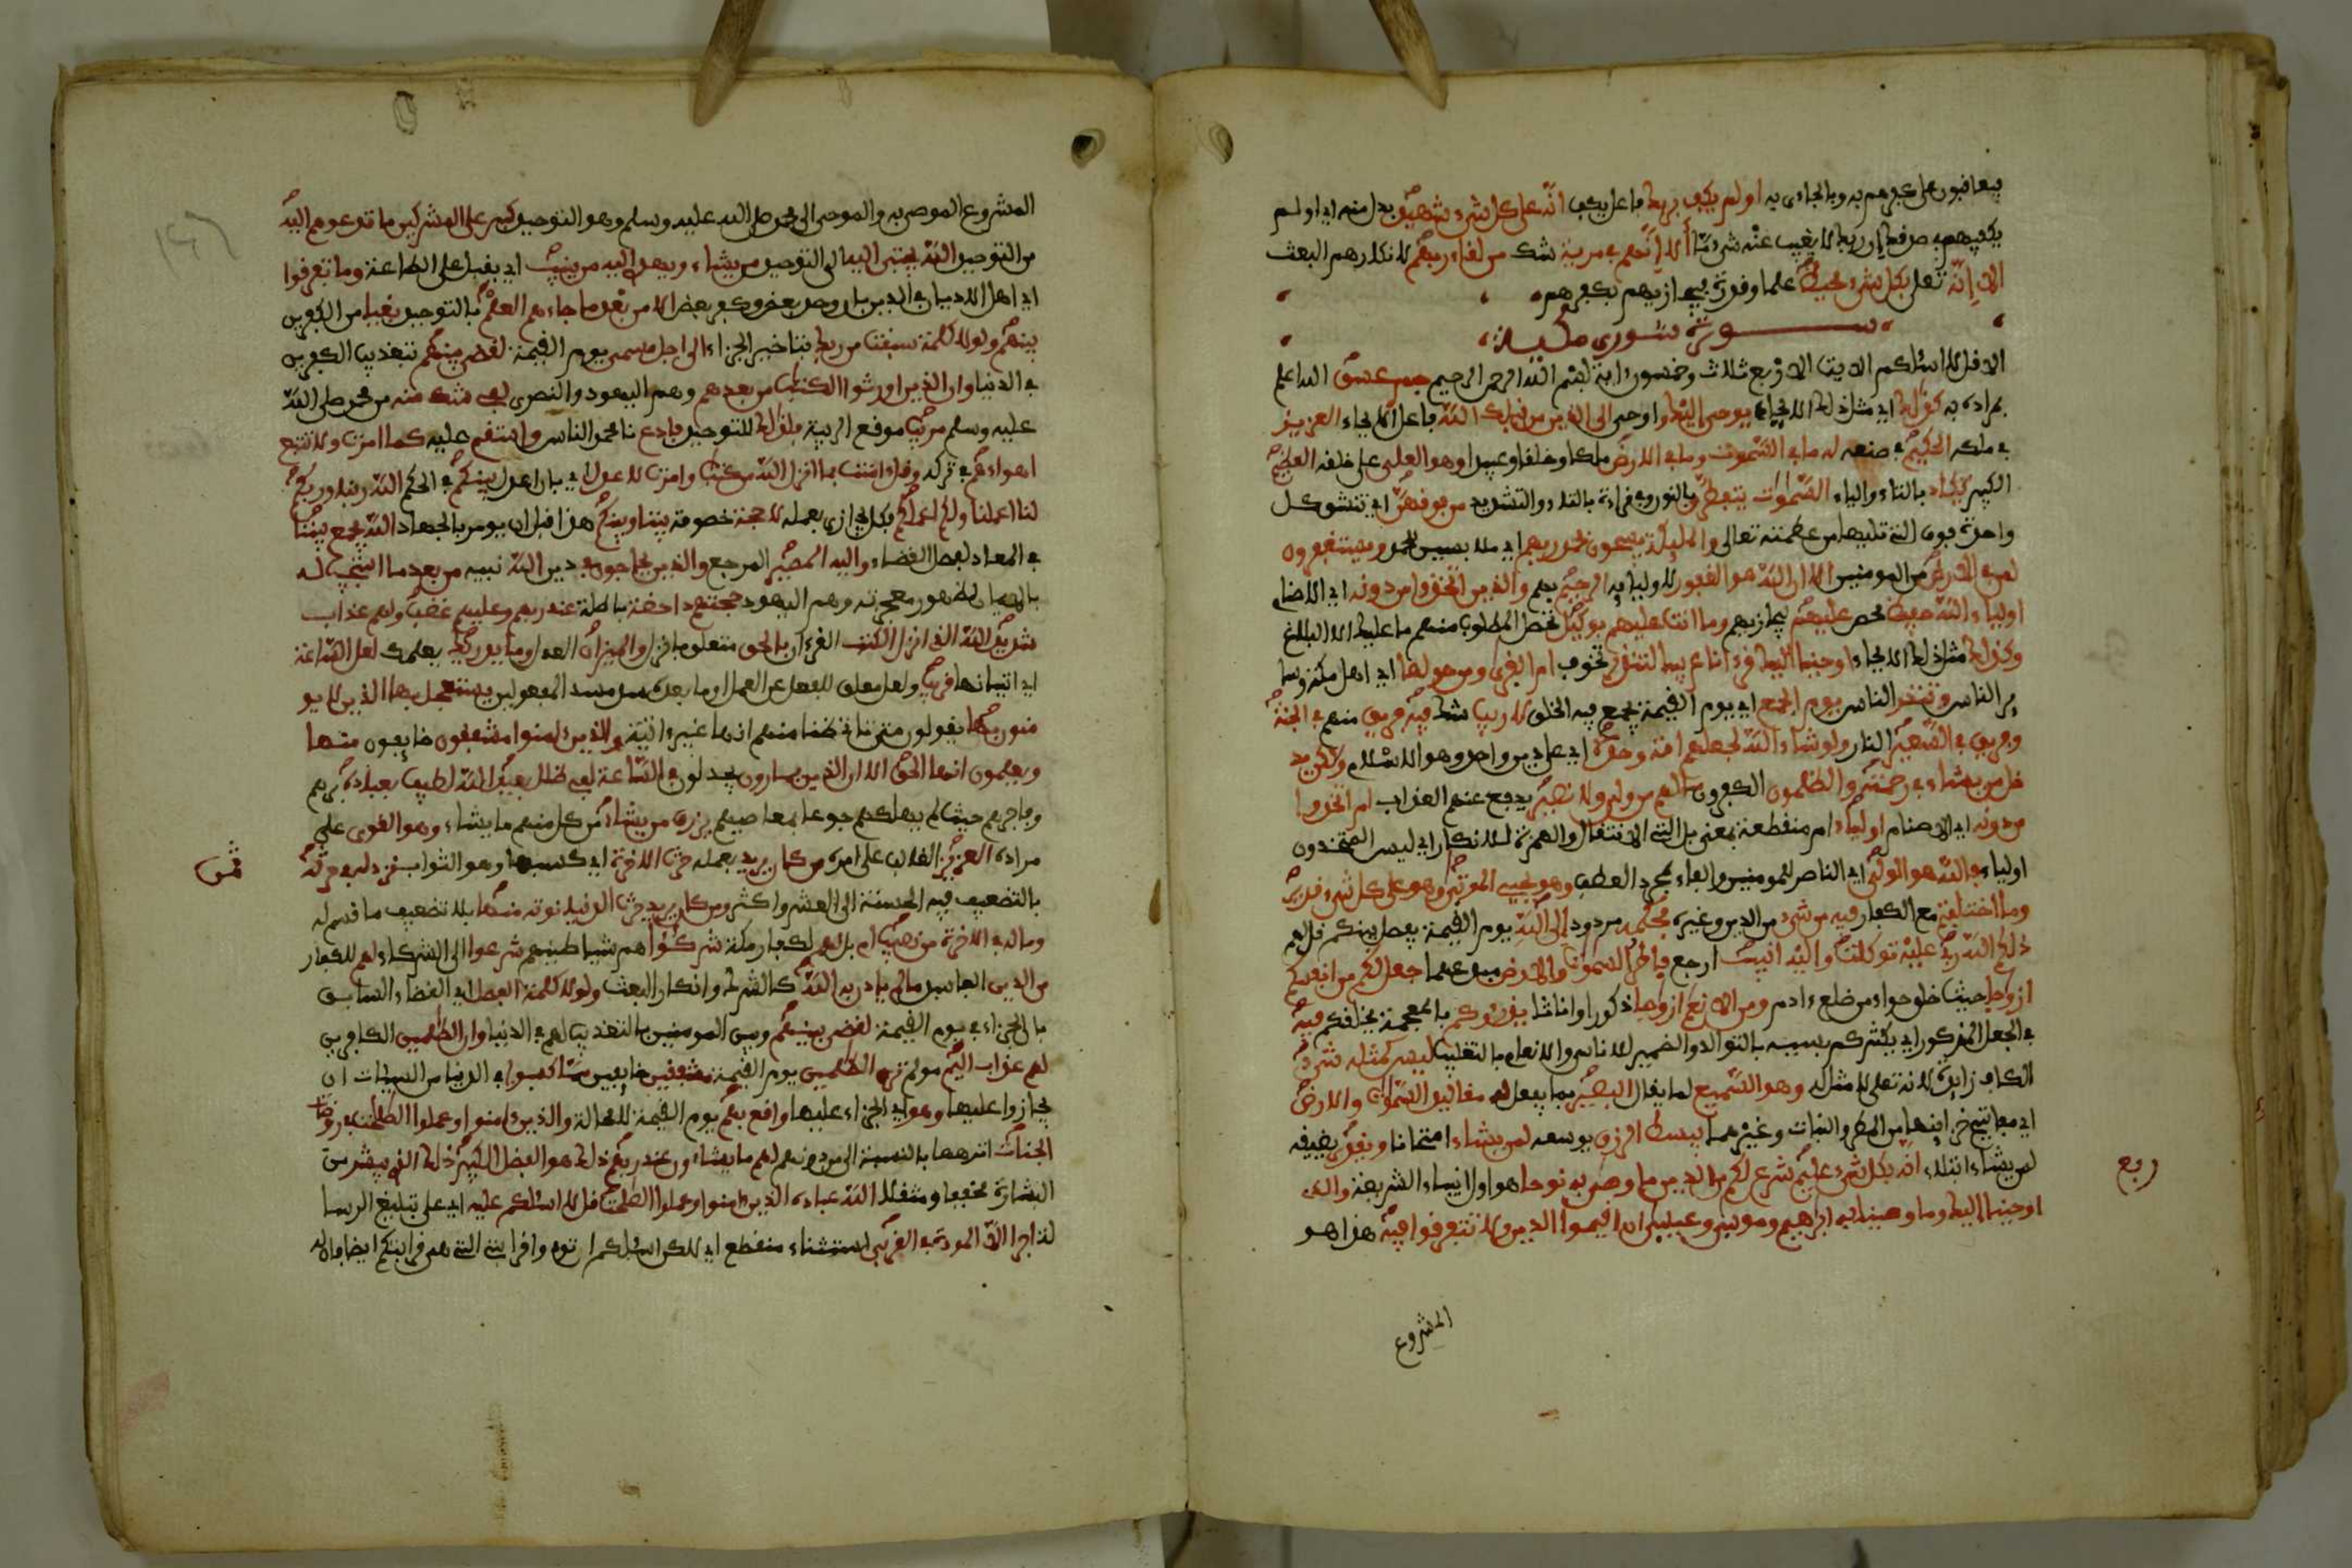 فيعاقبون على كفرهم به وبالجاءي به اولم يكف بربك فاعل يكف انه على كل شيء شهيد بدل منه اي اولم
يكفهم في صدقك ان ربك لا يغيب عنه شيء ما ألا إنهم في مرية شك من لقاء ربهم لانكارهم البعث
الا إنه تعلى بكل شيء محيط علما وقدرة فيجازيهم بكفرهم
سورة شورى مكية
الا قل لا اسئلكم الايات الاربع ثلاث وخمسون ءاية بسم الله الرحمن الرحيم حم عسق الله اعلم
بمراده به كذلك اي مثل ذلك الايحاء يوحي إليك و اوحى الى الذين من قبلك الله فاعل الايحاء العزيز
في ملكه الحكيم في صنعه له ما في السموت وما في الارض ملكا وخلقا وعبيدا وهو العلي على خلقه العظيم
الكبير تكاد بالتاء والياء السموات ينفطرن بالنون وفي قراءة بالتاء والتشديد من فوقهن اي تنشق كل
واحدة فوق التي تليها من عظمته تعالى والمليكة يسبحون بحمد ربهم اي ملابسين للحمد ويستغفرون
لمن في الارض من المومنين الا ان الله هو الغفور لاوليايه الرحيم بهم والذين اتخذوا من دونه اي الاصنام
اولياء الله حفيظ محص عليهم ليجازيهم وما انت عليهم بوكيل تحصل المطلوب منهم ما عليك الا البلاغ
وكذلك مثل ذلك الايحاء اوحينا اليك قرءانا عربيا لتنذر تخوف ام القرى ومن حولها اي اهل مكة وسا
ير الناس وتنذر الناس يوم الجمع اي يوم القيمة يجمع فيه الخلق لا ريب شك فيه فريق منهم في الجنة
وفريق في السعير النار ولو شاء الله لجعلهم امة وحدة اي على دين واحد وهو الاسلام ولكن يد
خل من يشاء في رحمته والظلمون الكفرون ما لهم من ولي ولا نصير يدفع عنهم العذاب ام اتخذوا
من دونه اي الاصنام اولياء ام منقطعة بمعنى بل التي للانتقال والهمزة للانكار اي ليس المتخذون
اولياء فالله هو الولي اي الناصر للمومنين والفاء لمجرد العطف وهو يحيي الموتى وهو على كل شيء قدير
وما اختلفتم مع الكفار فيه من شيء من الدين وغيره فحكمه مردود إلى الله يوم القيمة يفصل بينكم قل لهم
ذلكم الله ربي عليه توكلت واليه انيب ارجع فاطر السموت والارض مبدعهما جعل لكم من انفسكم
ازوجا حيث خلق حواء من ضلع ءادم ومن الانعم ازوجا ذكورا واناثا يذرؤكم بالمعجمة يخلقكم فيه
في الجعل المذكور اي يكثركم بسببه بالتوالد والضمير للاناس والانعام بالتغليب ليس كمثله شيء
الكاف زايدة لانه تعلى لا مثل له وهو السميع لما يقال البصير بما يفعل له مقاليد السموت والارض
اي مفاتيح خزاينها من المطر والنبات وغيرهما يبسط الرزق يوسعه لمن يشاء امتحانا ويقدر يضيقه
لمن يشاء ابتلاء انه بكل شيء عليم شرع لكم من الدين ما وصى به نوحا هو اول انبياء الشريعة والذي
اوحينا اليك وما وصينا به ابرهيم وموسى وعيسى ان اقيموا الدين ولا تتفرقوا فيه هذا هو
ربع
المشروع
المشروع الموصى به والموحى الى محمد صلى الله عليه وسلم وهو التوحيد كبر على المشركين ما تدعوهم اليه
من التوحيد الله يجتبي اليه الى التوحيد من يشاء ويهدي اليه من ينيب اي يقبل على الطاعة وما تفرقوا
اي اهل الاديان في الدين بان وحد بعض وكفر بعض الا من بعد ما جاءهم العلم بالتوحيد بغيا من الكفرين
بينهم ولولا كلمة سبقت من ربك بتاخير الجزاء الى اجل مسمى يوم القيمة لقضي بينهم بتعذيب الكفرين
في الدنيا وان الذين اورثوا الكتب من بعدهم وهم اليهود والنصرى لفي شك منه من محمد صلى الله
عليه وسلم مريب موقع الريبة فلذلك للتوحيد فادع يا محمد الناس واستقم عليه كما امرت ولا تتبع
اهواءهم في تركه وقل ءامنت بما انزل الله من كتب وامرت لاعدل اي بان اعدل بينكم في الحكم الله ربنا وربكم
لنا اعملنا ولكم اعملكم فكل يجازى بعمله لا حجة خصومة بيننا وبينكم هذا قبل ان يومر بالجهاد الله يجمع بيننا
في المعاد لفصل القضاء واليه المصير المرجع والذين يحاجون في دين الله نبيه من بعد ما استجيب له
بالايمان لظهور معجزته وهم اليهود حجتهم داحضة باطلة عند ربهم وعليهم غضب ولهم عذاب
شديد الله الذي انزل الكتب القرءان بالحق متعلق بانزل والميزان العدل وما يدريك يعلمك لعل الساعة
اي اتيانها قريب ولعل معلق للفعل عن العمل او ما بعده سد مسد المفعولين يستعجل بها الذين لا يو
منون بها يقولون متى تاتي ظنا منهم انها غير ءاتية والذين ءامنوا مشفقون خايفون منها
ويعلمون انها الحق الا ان الذين يمارون يجدلون في الساعة لفي ضلل بعيد الله لطيف بعباده برهم
وفاجرهم حيث لم يهلكهم جوعا بمعاصيهم يرزق من يشاء من كل منهم ما يشاء وهو القوي على
مراده العزيز الغالب على امره من كان يريد بعمله حرث الاخرة اي كسبها وهو الثواب نزد له في حرثه
ثمن
بالتضعيف فيه الحسنة الى العشر واكثر ومن كان يريد حرث الدنيا نوته منها بلا تضعيف ما قسم له
وما له في الاخرة من نصيب ام بل لهم لكفار مكة شركؤا هم شياطينهم شرعوا اي الشركاء لهم للكفار
من الدين الفاسد ما لم ياذن به الله كالشرك وانكار البعث ولولا كلمة الفصل اي القضاء السابق
بان الجزاء في يوم القيمة لقضي بينهم وبين المومنين بالتعذيب لهم في الدنيا وان الظلمين الكافرين
لهم عذاب اليم مولم ترى الظلمين يوم القيمة مشفقين خايفين مما كسبوا في الدنيا من السيئات ان
يجازوا عليها وهو اي الجزاء عليها واقع بهم يوم القيمة لا محالة والذين ءامنوا وعملوا الصلحت في روضات
الجنات انزهها بالنسبة الى من دونهم لهم ما يشاءون عند ربهم ذلك هو الفضل الكبير ذلك الذي يبشر من
البشارة مخففا ومثقلا الله عباده الذين ءامنوا وعملوا الصلحت قل لا اسئلكم عليه اي على تبليغ الرسا
لة اجرا الا المودة في القربى استثناء منقطع اي لكن اسئلكم ان تودوا قرابتي التي هي قرابتكم ايضا فان له